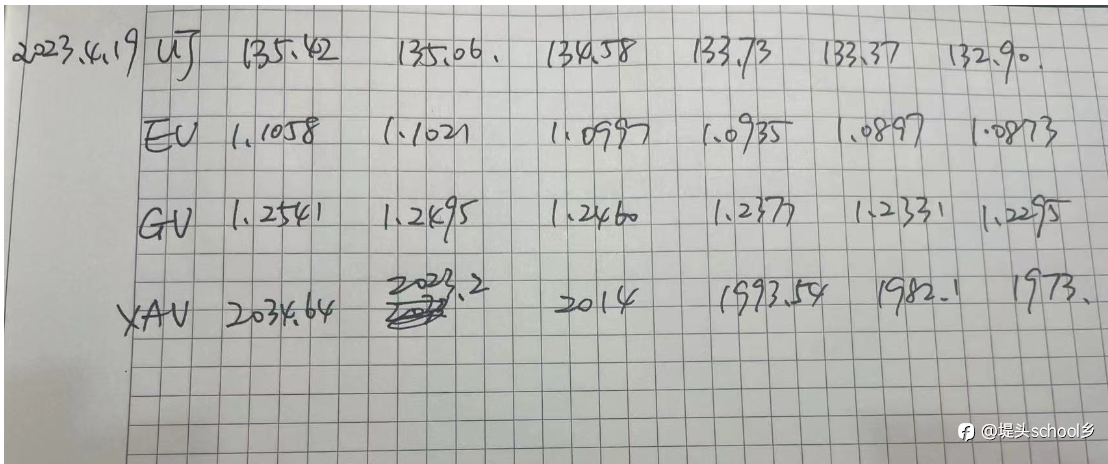 2023.4.19 UJ 135.42 135.06. 134.58 133.73 133.37 132.90.
EU 1.1058 1.1021 1.0997 1.0935 1.0897 1.0873
GU 1.2541 1.2495 1.2460 1.2377 1.2331 1.2295
XAU 2034.64 2023.2 2014 1993.54 1982.1 1973.
@堤头school乡